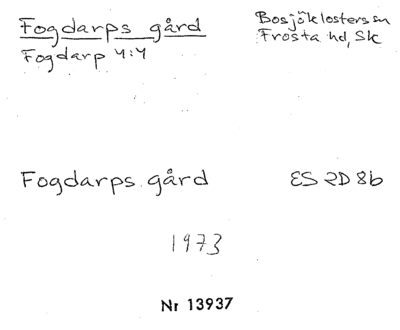 Fogdarps gård
Bosjöklosters sn
Fogdarp 4:4
Frosta hd, Sk
Fogdarps gård
ES 2D 8b
1973
Nr 13937